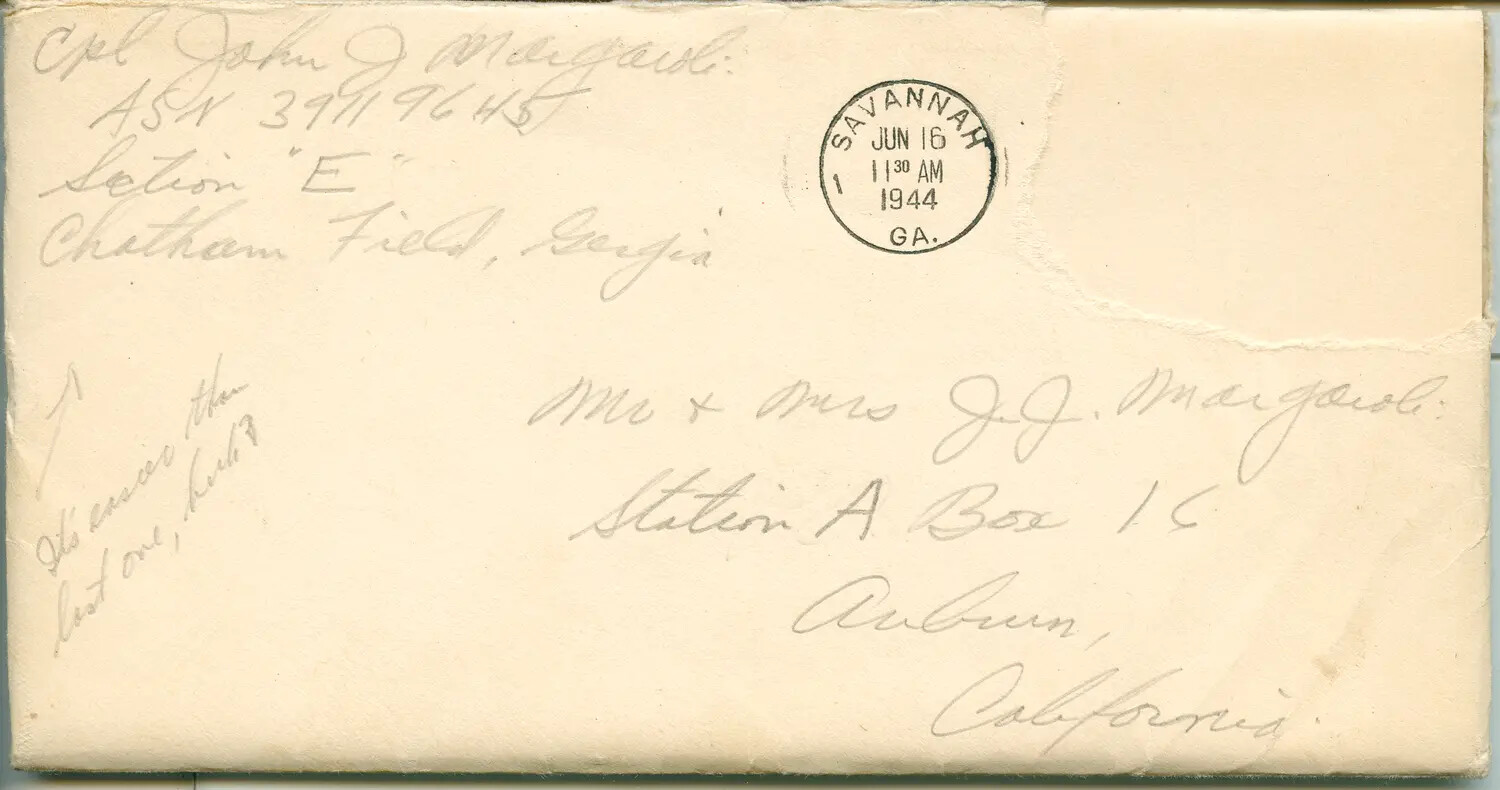 Cpl John J Margaroli
ASN 39119645
Section "E"
Chatham Field, Georgia
SAVANNAH
JUN 16
11 30 AM
1944
1
GA.
It's easier than
last one, huh?
Mr + Mrs J.J. Margaroli
Station A Box 16
Auburn,
California